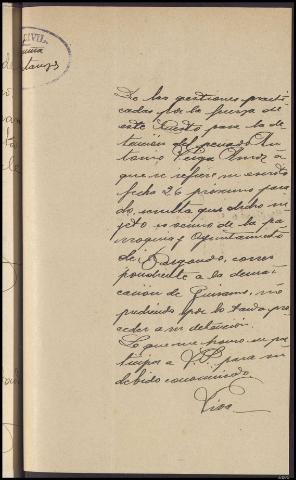 CIVIL
De las gestiones practi
cadas por la fuerza de
este Puesto para la de
tención del penado An
tonio á
que se refiere su escrito
fecha 26 próximo pasa
do, resulta que dicho su
jeto es vecino de la pa
rroquia y Ayuntamiento
de Bergondo, corres
pondiente á la demar
cación de Guisamo, no
pudiendo por lo tanto pro
ceder a su detencion.
Lo que me honro en par
ticipar a V.S. para su
debido conocimiento.
Dios